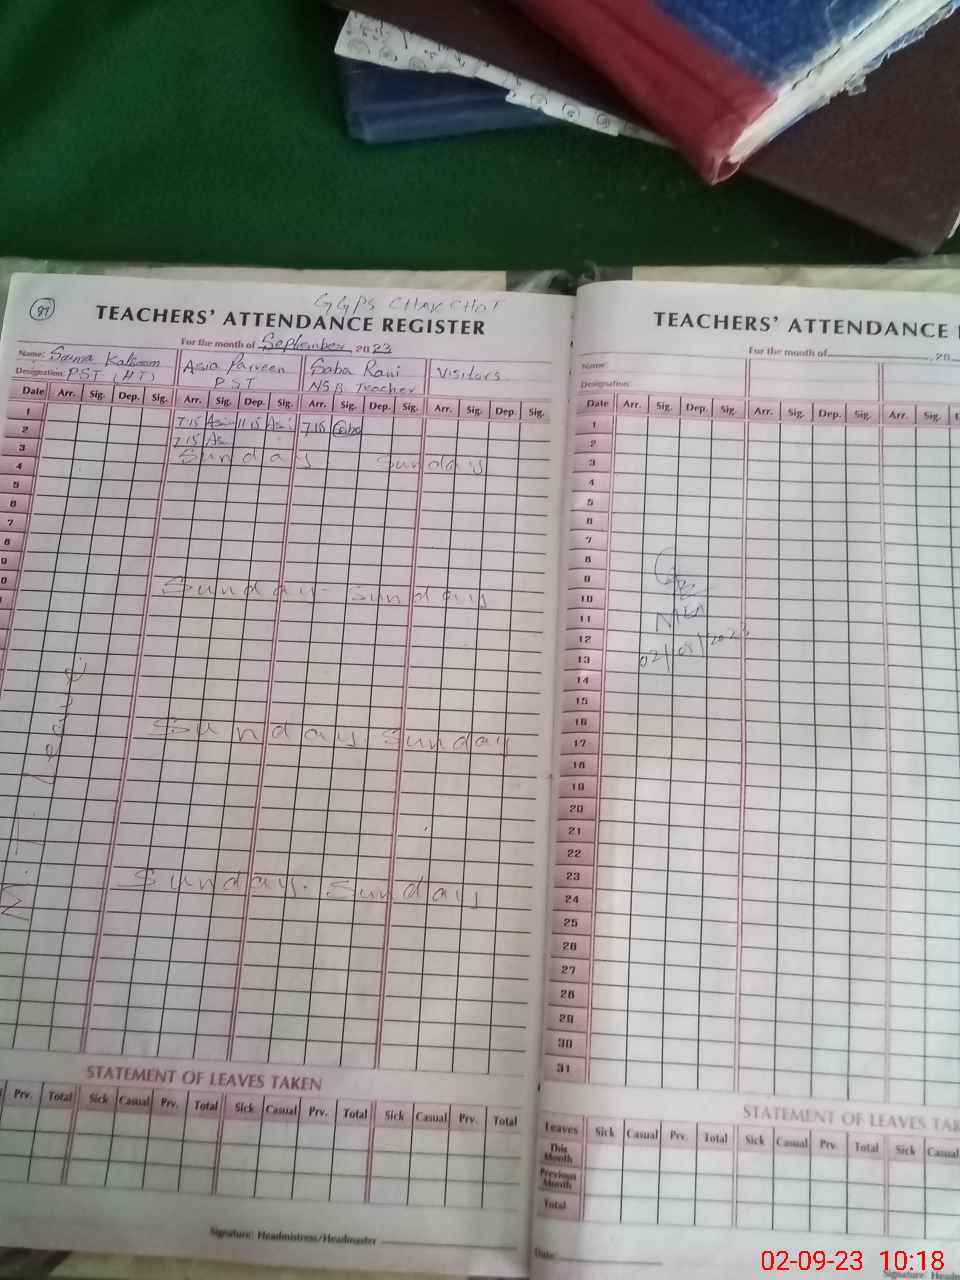 87
GGPS CHAK CHOT
TEACHERS' ATTENDANCE REGISTER
For the month of September, 2023
Name: Sauma Kalsoom
Designation: PST (HT)
Asia Parveen
PST
Saba Rani
NSB Teacher
Visitors
Date Arr. Sig. Dep. Sig. Arr. Sig. Dep. Sig. Arr. Sig. Dep. Sig. Arr. Sig. Dep. Sig.
1 7:15 Asia 11:15 Asia 7:15 Saba
2 7:15 As
3 Sunday Sunday
4
5
6
7
8
9
0 Sunday Sunday
Sunday Sunday
Sunday Sunday
STATEMENT OF LEAVES TAKEN
Prv. Total Sick Casual Prv. Total Sick Casual Prv. Total Sick Casual Prv. Total
Signature: Headmistress/Headmaster
TEACHERS' ATTENDANCE
For the month of , 20
Name:
Designation:
Date Arr. Sig. Dep. Sig. Arr. Sig. Dep. Sig. Arr. Sig.
1
2
3
4
5
6
7
8
9
10
11 MEA
12
13 02/09/2023
14
15
16
17
18
19
20
21
22
23
24
25
26
27
28
29
30
31
STATEMENT OF LEAVES TAK
Leaves Sick Casual Prv. Total Sick Casual Prv. Total Sick Casual
This Month
Previous Month
Total
Date
Signature: Head
02-09-23 10:18